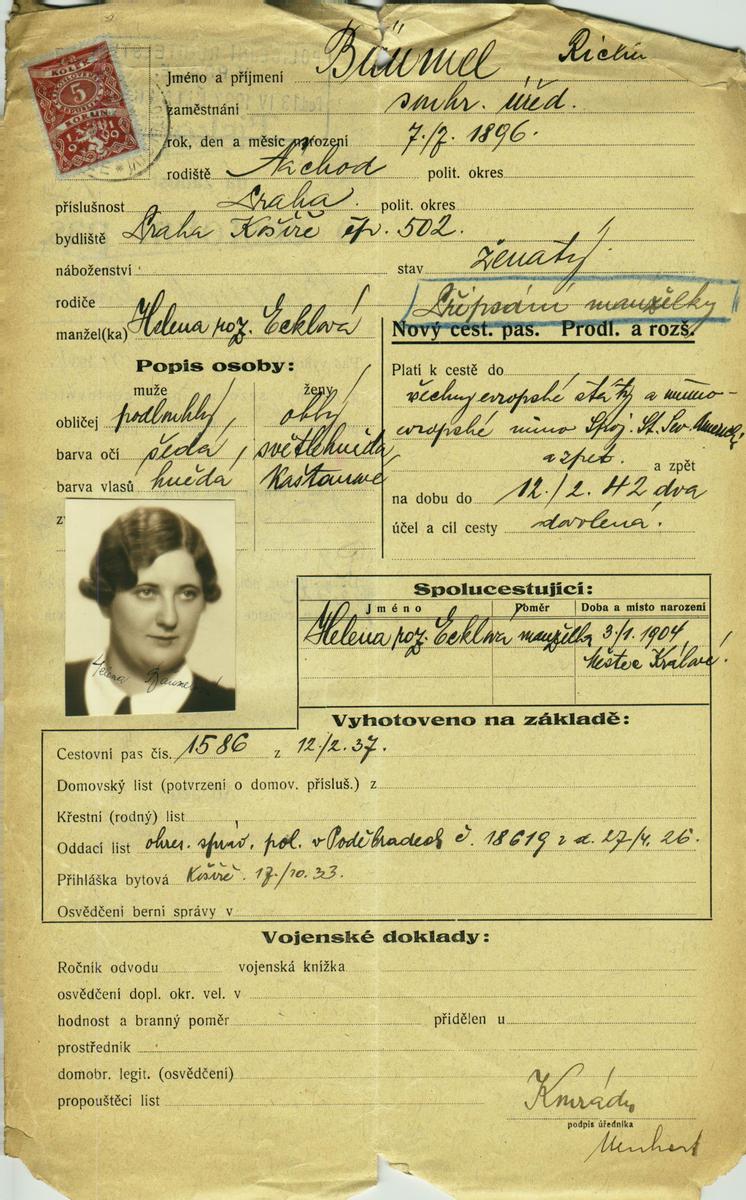 KOLEK
5
KORUN
1919
Jméno a příjmení Bäumel
zaměstnání soukr. úřed.
rok, den a měsíc narození 7./7. 1896.
rodiště Náchod polit. okres
příslušnost Praha. polit. okres
bydliště Praha Košíře čp. 502.
náboženství stav ženatý
rodiče Připsání manželky
manžel(ka) Helena roz. Ecklová
Nový cest. pas. Prodl. a rozš.
Popis osoby:
muže ženy
obličej podlouhlý, oblý
barva očí šedá, světlehnědá
barva vlasů hnědá, kaštanové
Platí k cestě do
všechny evropské státy a mimo-
evropské mimo Spoj. St. Sev. Ameriky
a zpět. a zpět
na dobu do 12./2. 42 dva
účel a cíl cesty dovolená.
Helena
Spolucestující:
Jméno Poměr Doba a místo narození
Helena roz. Ecklová manželka 3/1. 1904
Městec Králové.
Vyhotoveno na základě:
Cestovní pas čís. 1586 z 12./2. 37.
Domovský list (potvrzení o domov. přísluš.) z
Křestní (rodný) list
Oddací list okres. správ. pol. v Poděbradech č. 18619 z d. 27/4. 26.
Přihláška bytová Košíře 17./10. 33.
Osvědčení berní správy v
Vojenské doklady:
Ročník odvodu vojenská knížka
osvědčení dopl. okr. vel. v
hodnost a branný poměr přidělen u
prostředník
domobr. legit. (osvědčení)
propouštěcí list
podpis úředníka